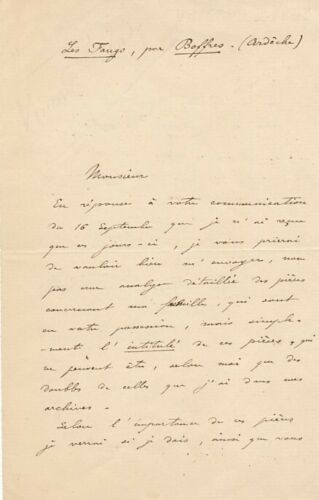 Les Faugs, par Boffres. (Ardèche)
Monsieur
En réponse à votre communication
du 16 Septembre que je n'ai reçue
que ces jours-ci, je vous prierai
de vouloir bien m'envoyer, non
pas une analyse détaillée des pièces
concernant ma famille, qui sont
en votre possession, mais simple-
-ment l'intitulé de ces pièces, qui
ne peuvent être, selon moi que des
doubles de celles que j'ai dans mes
archives.
Selon l'importance de ces pièces
je verrai si je dois, ainsi que vous